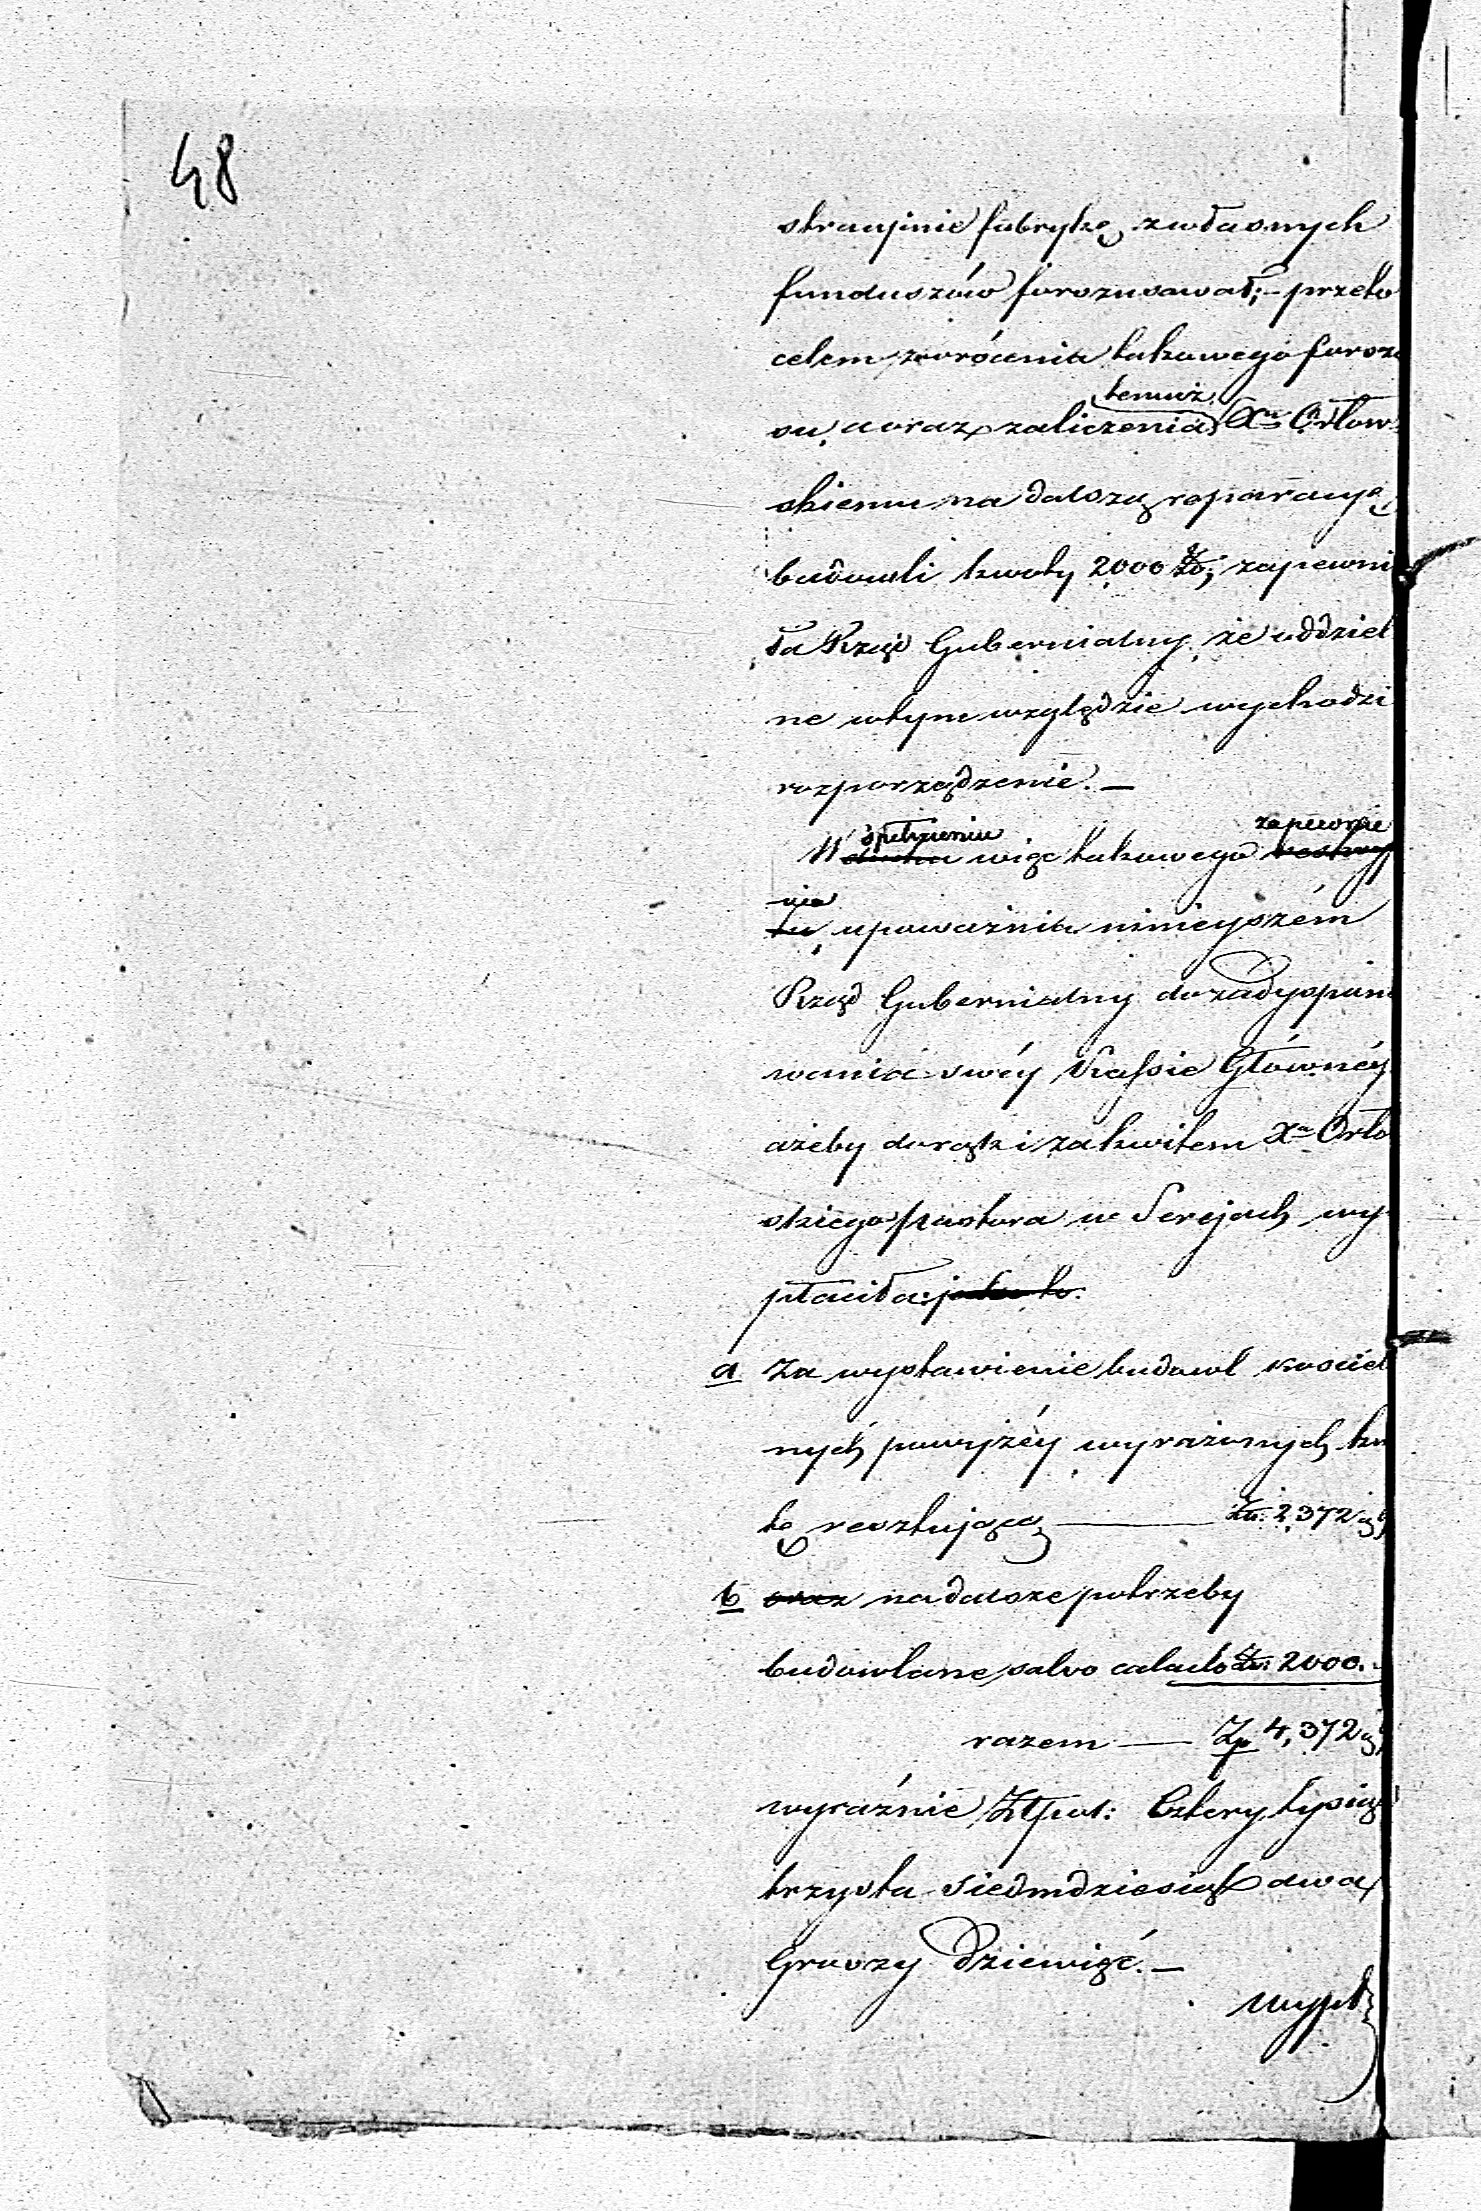 48
strucyinie fabrykę z własnych
funduszów forszusował; - przeto
celem zwrócenia takowego forszu
su, a oraz zaliczenia temuż Xu Orłow-
skiemu na dalszą reparacyę
budowli kwoty 2000 Złp; zapewni
ła Rząd Gubernialny, że oddziel
ne w tym względzie wychodzi
rozporządzenie. —
W spełnieniu więc takowego zapewnie
nia upoważnia ninieyszém
Rząd Gubernialny do zadyspono
wania swéy Kassie Głównéy
ażeby do rąk i za kwitem Xa Orło
skiego pastora w Serejach wy-
płaciła: jako to.
a Za wystawienie budowl kościel
nych powyżéy wyrażonych kwo
tę resztującą — Złp. 2,372 g 9
b oraz na dalsze potrzeby
budowlane salvo calculo Złp: 2000. -
razem — Zp 4,372 g 9
wyraźnie Złpol: Cztery tysiące
trzysta siedmdziesiąt dwa
Groszy Dziewięć. —
Wypł